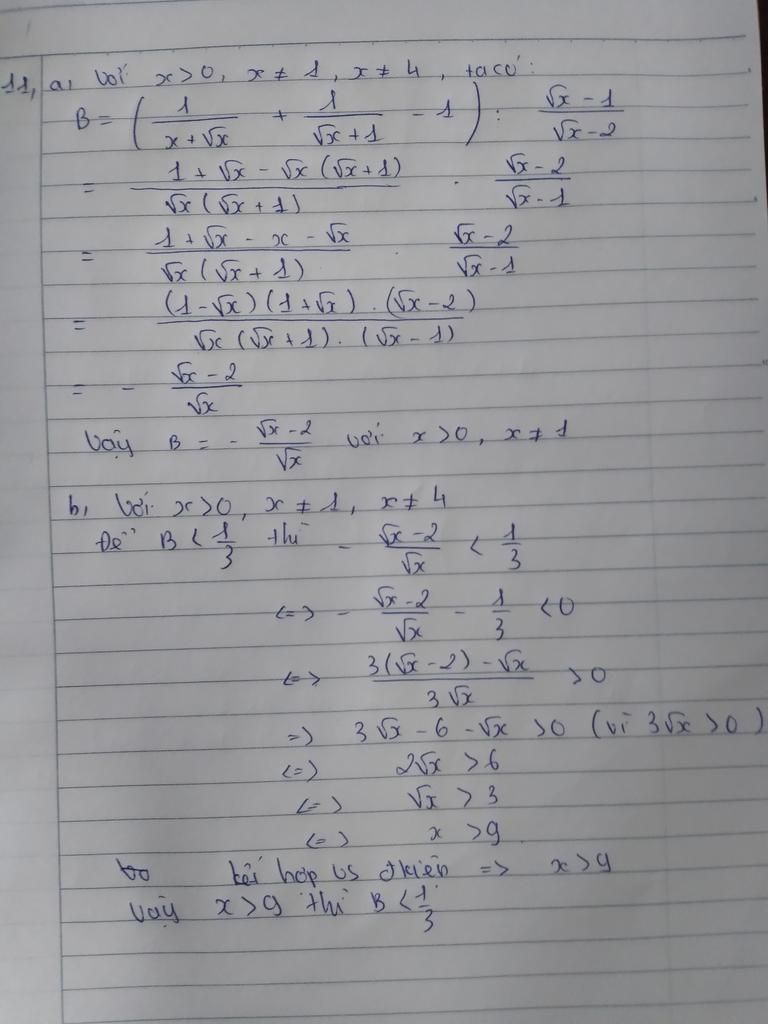 11, a, Với x > 0, x ≠ 1, x ≠ 4, ta có:
B = (1/(x + √x) + 1/(√x + 1) - 1) : (√x - 1)/(√x - 2)
= (1 + √x - √x (√x + 1))/(√x (√x + 1)) . (√x - 2)/(√x - 1)
= (1 + √x - x - √x)/(√x (√x + 1)) . (√x - 2)/(√x - 1)
= ((1 - √x)(1 + √x) . (√x - 2))/(√x (√x + 1) . (√x - 1))
= - (√x - 2)/√x
Vậy B = - (√x - 2)/√x với x > 0, x ≠ 1
b, Với x > 0, x ≠ 1, x ≠ 4
Để B < 1/3 thì - (√x - 2)/√x < 1/3
<=> - (√x - 2)/√x - 1/3 < 0
<=> (3(√x - 2) - √x)/(3√x) > 0
=> 3√x - 6 - √x > 0 (vì 3√x > 0)
<=> 2√x > 6
<=> √x > 3
<=> x > 9
kết hợp vs đkiện => x > 9
Vậy x > 9 thì B < 1/3